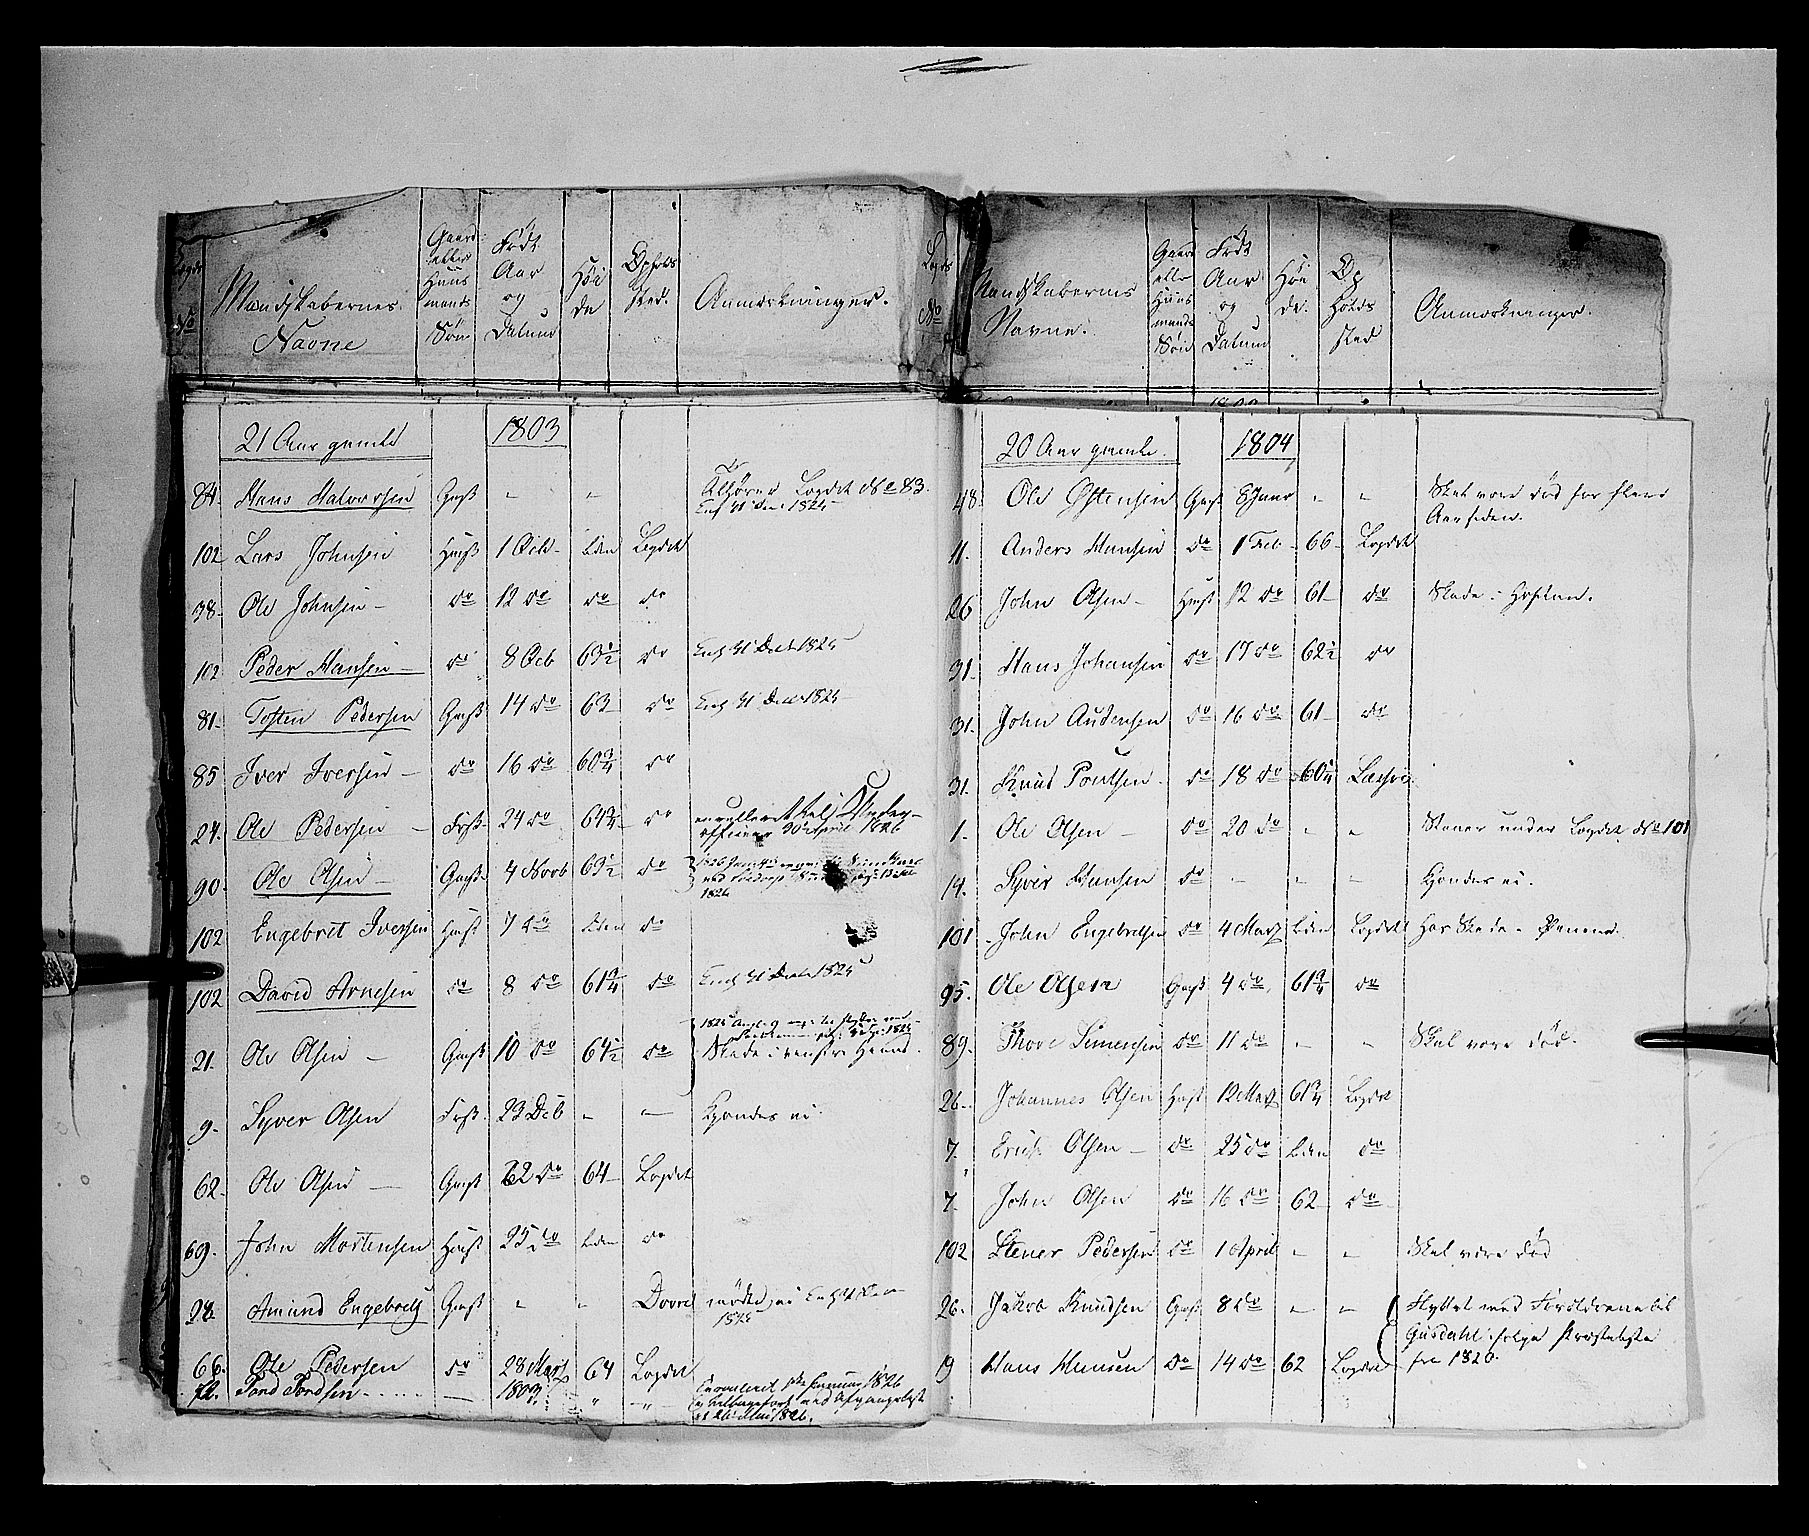 Mandskabernes Navne
Gaard eller Huus mands Søn
Født Aar og Datum
Høi de
Opholds sted.
Anmærkninger.
21 Aar gamle 1803
84. Hans Halvorsen Gmß " " Tilhører Lægdet No 83.
102 Lars Johnsen Hmß 1 Octb. Liden Lægdet
38. Ole Johnsen do 12 do do do
102 Peder Hansen do 8 Octb 63½ do
81. Tosten Pedersen Gmß 14 do 63 do
85 Iver Iversen do 16 do 60¾ do
24. Ole Pedersen 24 do 64¾ do
officeer 30te April 1826
90. Ole Olsen Gmß 4 Novb 63½ do
1826
102 Engebret Iversen Hmß 7 do Liden do
102 David Arnesen do 8 do 61¾ do
21. Ole Olsen Gmß 10 do 64½ do Skade i venstre Haand.
9. Syver Olsen 23 Deb " " Kjendes ei.
62. Ole Olsen Gmß 22 do 64 Lægdet
69. John Mortensen Hmß 25 do Liden do
28. Amund Engebrets Gmß " " Dovre mødte ei
66. Ole Pedersen do 28 Marz 64 Lægdet
72. Tord Tordsen 1803. " "
26 Mai 1826.
Lægds No
Mandskabernes Navne.
Gaard eller Huus mands Søn
Født Aar og Datum
Høi de.
Op holds sted
Anmærkninger.
20 Aar gamle. 1804
48. Ole Østensen Gmß 8 Janr " " Skal være død for flere
Aar siden.
11. Anders Hansen do 1 Feb 66 Lægdet
26 John Olsen Hmß 12 do 61 do Skade i Hoften.
31. Hans Johansen do 17 do 62½ do
31. John Audensen do 16 do 61 do
31. Knud Poulsen do 18 do 60¼
1. Ole Olsen do 20 do " " Staaer under Lægdet No 101
14. Syver Hansen do " " " Kjendes ei.
101 John Engebretsen do 4 Marz Liden Lægdet Har Skade
95. Ole Olsen Gmß 4 do 61¾ do
89. Thove Simensen do 11 do " " Skal være død.
26. Johannes Olsen Hmß 12 Marz 61¾ Lægdet
7. Erich Olsen do 25 do Liden do
7. John Olsen do 16 do 62 do
102 Stener Pedersen do 1 April " " Skal være død
26. Jakob Knudsen Gmß 8 do " " Flyttet med Forældrene til
Gusdahl
19 Hans Hansen do 14 do 62 Lægdet fra 1820.